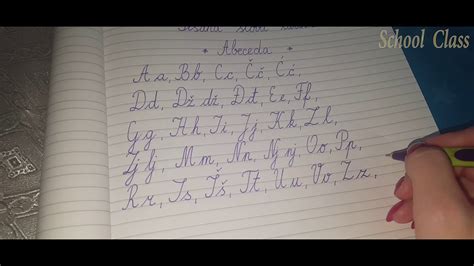 School Class
Pisana slova
* Abeceda *
Aa, Bb, Cc, Čč, Ćć,
Dd, Dž dž, Đđ, Ee, Ff,
Gg, Hh, Ii, Jj, Kk, Ll,
Lj lj, Mm, Nn, Nj nj, Oo, Pp,
Rr, Ss, Šš, Tt, Uu, Vv, Zz,